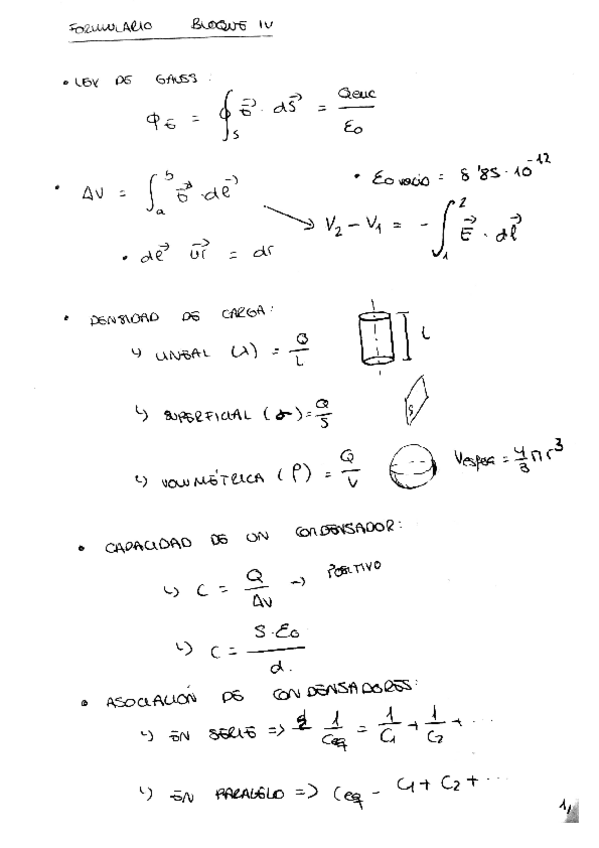 FORMULARIO BLOQUE IV
• LEY DE GAUSS:
Φ_E = ∮_S E⃗ · dS⃗ = Qenc / Eo
• ΔV = ∫_a^b E⃗ · dl⃗
• Eo vacío = 8'85 · 10^-12
→ V₂ - V₁ = - ∫_1^2 E⃗ · dl⃗
• dl⃗ ur⃗ = dr
• DENSIDAD DE CARGA:
↳ LINEAL (λ) = Q / L
L
↳ SUPERFICIAL (σ) = Q / S
S
↳ VOLUMÉTRICA (ρ) = Q / V
Vesfera = 4/3 π r³
• CAPACIDAD DE UN CONDENSADOR:
↳ C = Q / ΔV → POSITIVO
↳ C = S · Eo / d.
• ASOCIACIÓN DE CONDENSADORES:
↳ EN SERIE => 1 / Ceq = 1 / C₁ + 1 / C₂ + ...
↳ EN PARALELO => Ceq - C₁ + C₂ + ...
1,